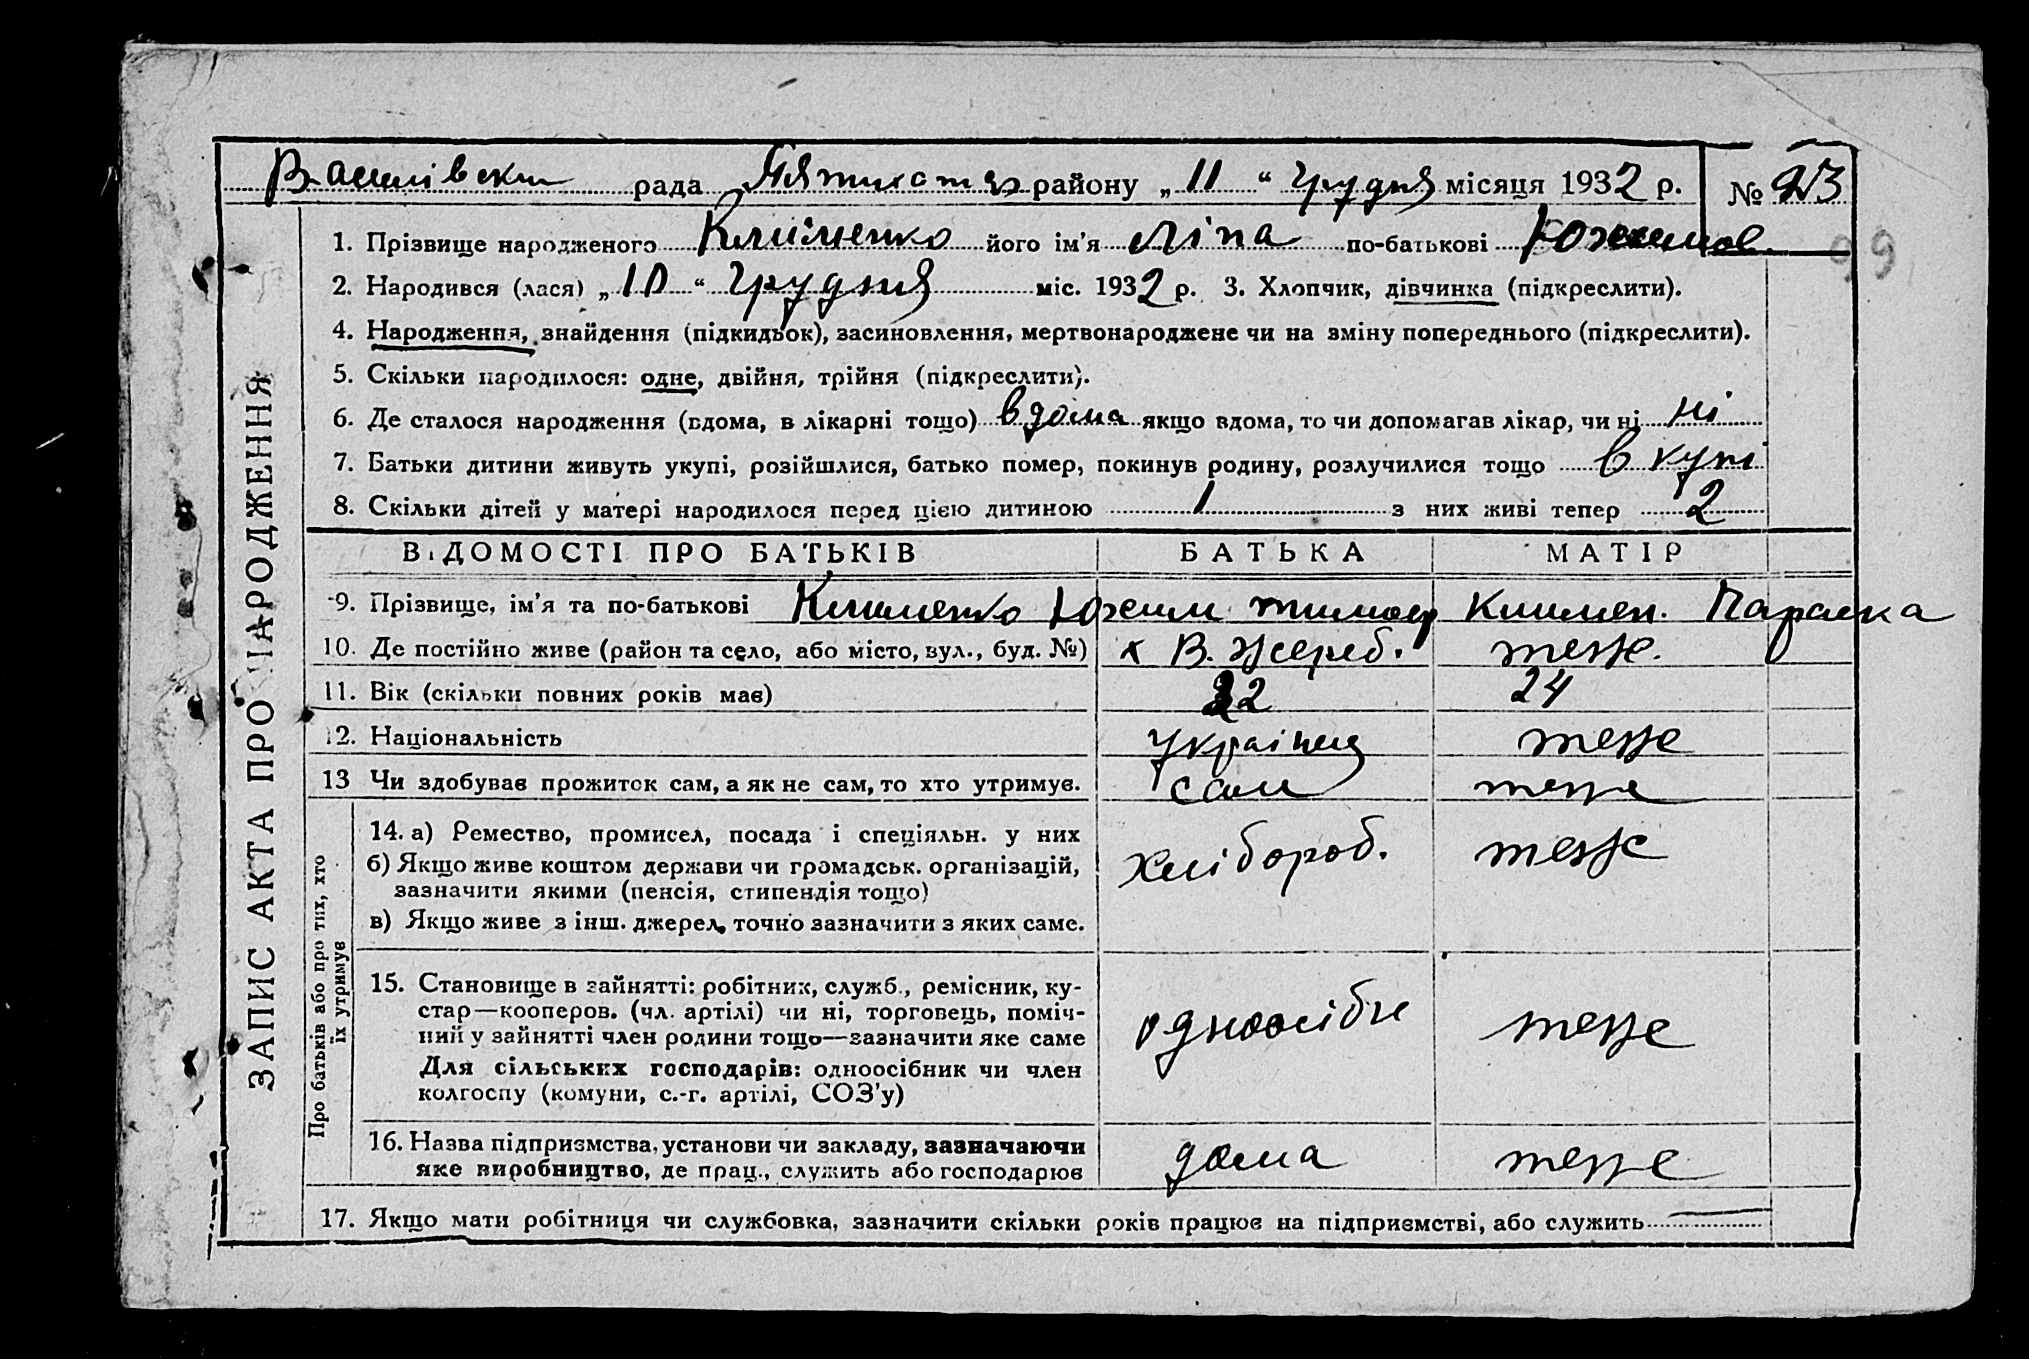 Василівськ рада Пятихатсь району „ 11 “ Грудня місяця 1932 р. № 23
1. Прізвище народженого Клименко його ім'я Ліпа по-батькові Юхимов.
99
2. Народився (лася) „ 10 “ Грудня міс. 1932 р. 3. Хлопчик, дівчинка (підкреслити).
4. Народження, знайдення (підкидьок), засиновлення, мертвонароджене чи на зміну попереднього (підкреслити).
5. Скільки народилося: одне, двійня, трійня (підкреслити).
6. Де сталося народження (вдома, в лікарні тощо) вдома якщо вдома, то чи допомагав лікар, чи ні ні
7. Батьки дитини живуть укупі, розійшлися, батько помер, покинув родину, розлучилися тощо в купі
8. Скільки дітей у матері народилося перед цією дитиною 1 з них живі тепер 2
ВІДОМОСТІ ПРО БАТЬКІВ БАТЬКА МАТІР
9. Прізвище, ім'я та по-батькові Клименко Юхим Тимоф Климен. Параска
10. Де постійно живе (район та село, або місто, вул., буд. №) х В. Жереб. теже.
11. Вік (скільки повних років має) 32 24
12. Національність Українец теже
13 Чи здобував прожиток сам, а як не сам, то хто утримує. сам теже
14. а) Ремество, промисел, посада і спеціяльн. у них
б) Якщо живе коштом держави чи громадськ. організацій, Хлібороб. теже
зазначити якими (пенсія, стипендія тощо)
в) Якщо живе з інш. джерел, точно зазначити з яких саме.
15. Становище в зайнятті: робітник, служб., ремісник, ку-
стар—кооперов. (чл. артілі) чи ні, торговець, поміч- одноосібн теже
ний у зайнятті член родини тощо—зазначити яке саме
Для сільських господарів: одноосібник чи член
колгоспу (комуни, с.-г. артілі, СОЗ'у)
16. Назва підприємства, установи чи закладу, зазначаючи дома теже
яке виробництво, де прац., служить або господарює
17. Якщо мати робітниця чи службовка, зазначити скільки років працює на підприємстві, або служить
ЗАПИС АКТА ПРО НАРОДЖЕННЯ
Про батьків або про тих, хто
їх утримує